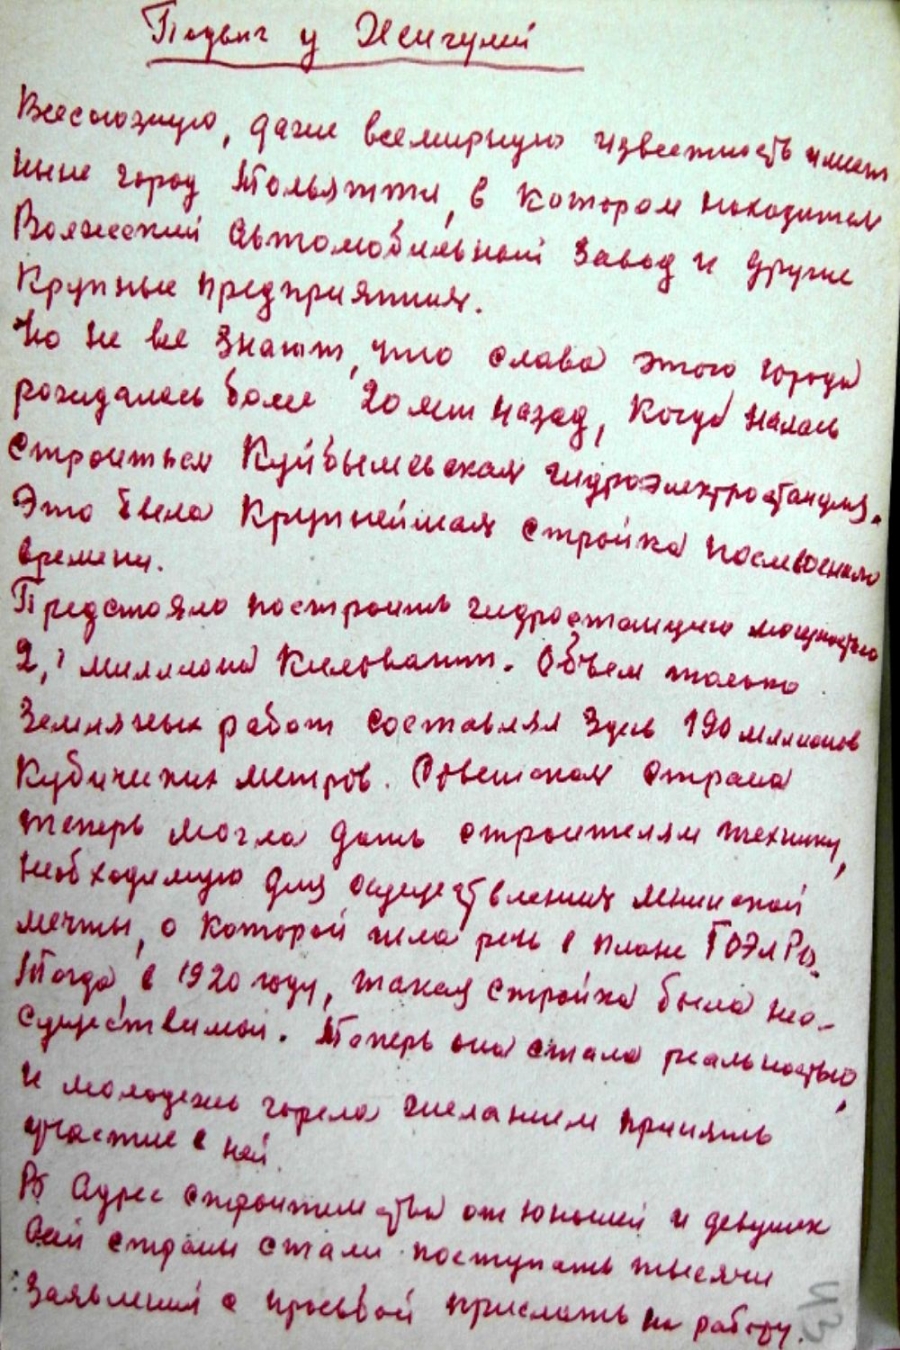 Подвиг у Жигулей
Всесоюзную, даже всемирную известность имеет
ныне город Тольятти, в котором находится
Волжский автомобильный завод и другие
крупные предприятия.
Но не все знают, что слава этого города
рождалась более 20 лет назад, когда началась
строиться Куйбышевская гидроэлектростанция.
Это была крупнейшая стройка послевоенного
времени.
Предстояло построить гидростанцию мощностью
2,1 миллиона киловатт. Объем только
земляных работ составлял здесь 190 миллионов
кубических метров. Советская страна
теперь могла дать строителям технику,
необходимую для осуществления ленинской
мечты, о которой шла речь в плане ГОЭЛРО.
Тогда, в 1920 году, такая стройка была нео-
существимой. Теперь она стала реальностью,
и молодежь горела желанием принять
участие в ней.
В адрес строительства от юношей и девушек
всей страны стали поступать тысячи
заявлений с просьбой прислать на работу.
43